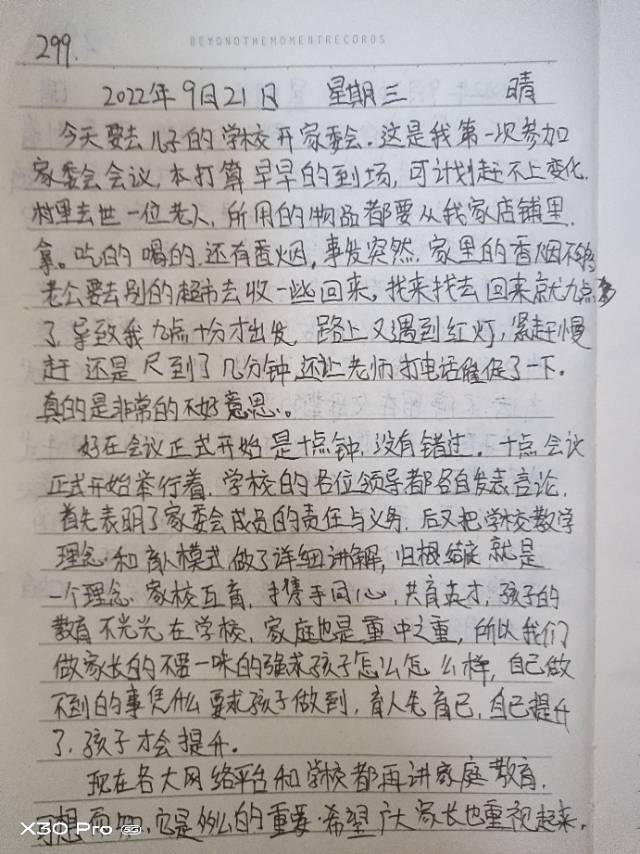 299.
BEYONDTHEMOMENTRECORDS
2022年9月21日 星期三 晴
今天要去儿子的学校开家委会.这是我第一次参加
家委会会议,本打算早早的到场,可计划赶不上变化.
村里去世一位老人,所用的物品都要从我家店铺里
拿。吃的喝的.还有香烟,事发突然,家里的香烟不够
老公要去别的超市去收一些回来,找来找去回来就九点多
了,导致我九点十分才出发,路上又遇到红灯,紧赶慢
赶还是尺到了几分钟,还让老师打电话催促了一下。
真的是非常的不好意思。
好在会议正式开始是十点钟,没有错过。十点会议
正式开始举行着,学校的各位领导都各自发表言论,
首先表明了家委会成员的责任与义务,后又把学校教学
理念.和育人模式,做了详细讲解,归根结底就是
一个理念.家校互育,携手同心,共育英才,孩子的
教育不光光在学校,家庭也是重中之重,所以我们
做家长的不要一味的强求孩子怎么怎么样,自己做
不到的事凭什么要求孩子做到,育人先育己,自己提升
了,孩子才会提升。
现在各大网络平台和学校都再讲家庭教育.
可想而知,它是多么的重要.希望广大家长也重视起来.
X30 Pro 5G